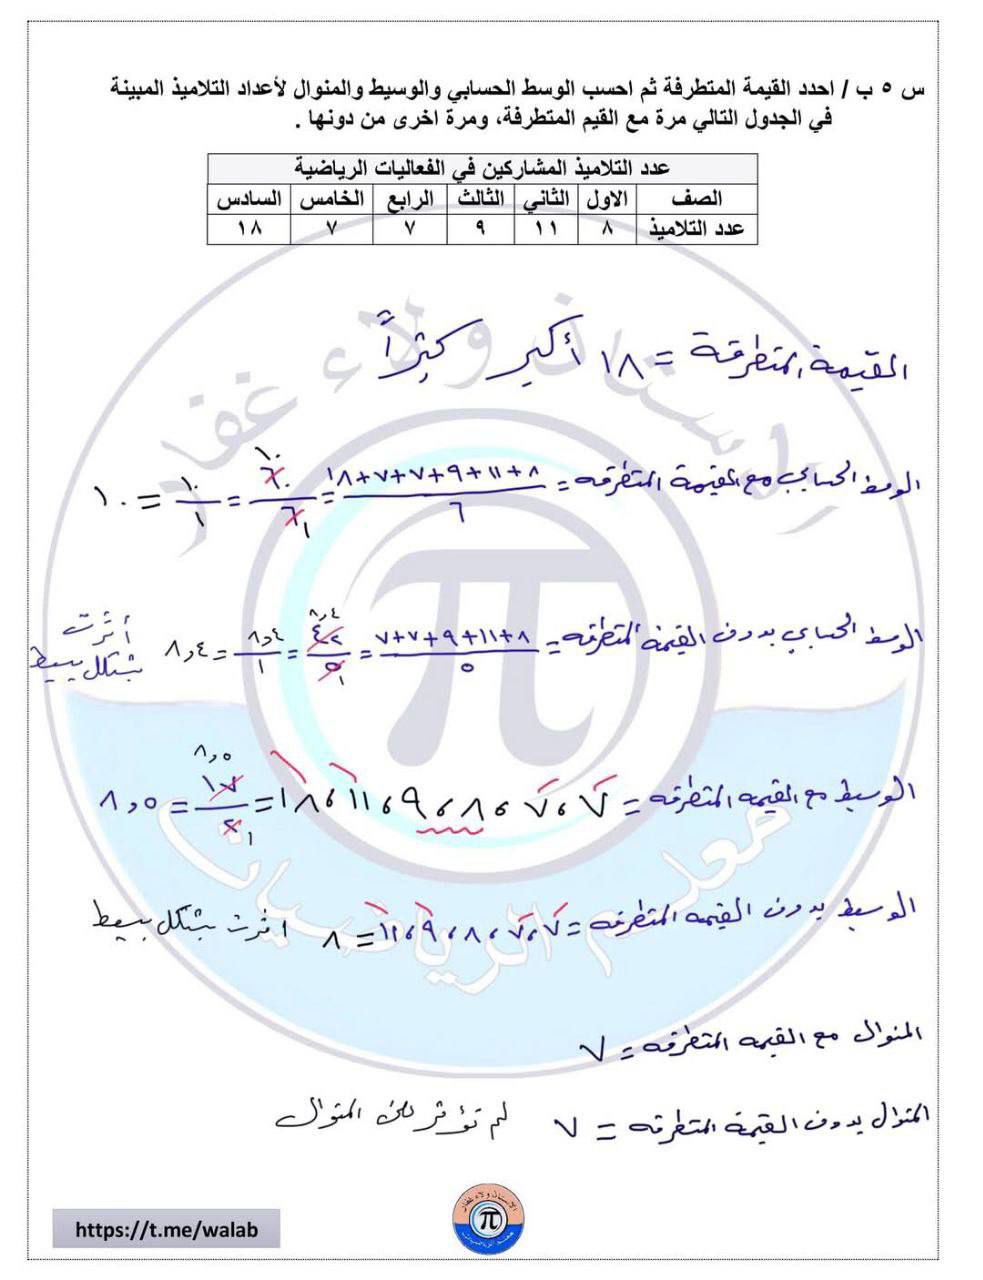 س ٥ ب / احدد القيمة المتطرفة ثم احسب الوسط الحسابي والوسيط والمنوال لأعداد التلاميذ المبينة
في الجدول التالي مرة مع القيم المتطرفة، ومرة اخرى من دونها .
عدد التلاميذ المشاركين في الفعاليات الرياضية
الصف الاول الثاني الثالث الرابع الخامس السادس
عدد التلاميذ ٨ ١١ ٩ ٧ ٧ ١٨
القيمة المتطرفة = ١٨ أكبر كثيراً
الوسط الحسابي مع القيمة المتطرفه = ٨+١١+٩+٧+٧+١٨ / ٦ = ٦٠ / ٦ = ١٠ / ١ = ١٠
الوسط الحسابي بدون القيمة المتطرفه = ٨+١١+٩+٧+٧ / ٥ = ٤٢ / ٥ = ٨,٤ / ١ = ٨,٤ أثرت بشكل بسيط
الوسيط مع القيمه المتطرفه = ٧، ٧، ٨، ٩، ١١، ١٨ = ١٧ / ٢ = ٨,٥
الوسيط بدون القيمه المتطرفه = ٧، ٧، ٨، ٩، ١١ = ٨ اثرت بشكل بسيط
المنوال مع القيمه المتطرفه = ٧
المنوال بدون القيمة المتطرفه = ٧ لم تؤثر على المنوال
الاستاذ ولاء غفار
معلم الرياضيات
π
https://t.me/walab
الاستاذ ولاء غفار
π
معلم الرياضيات